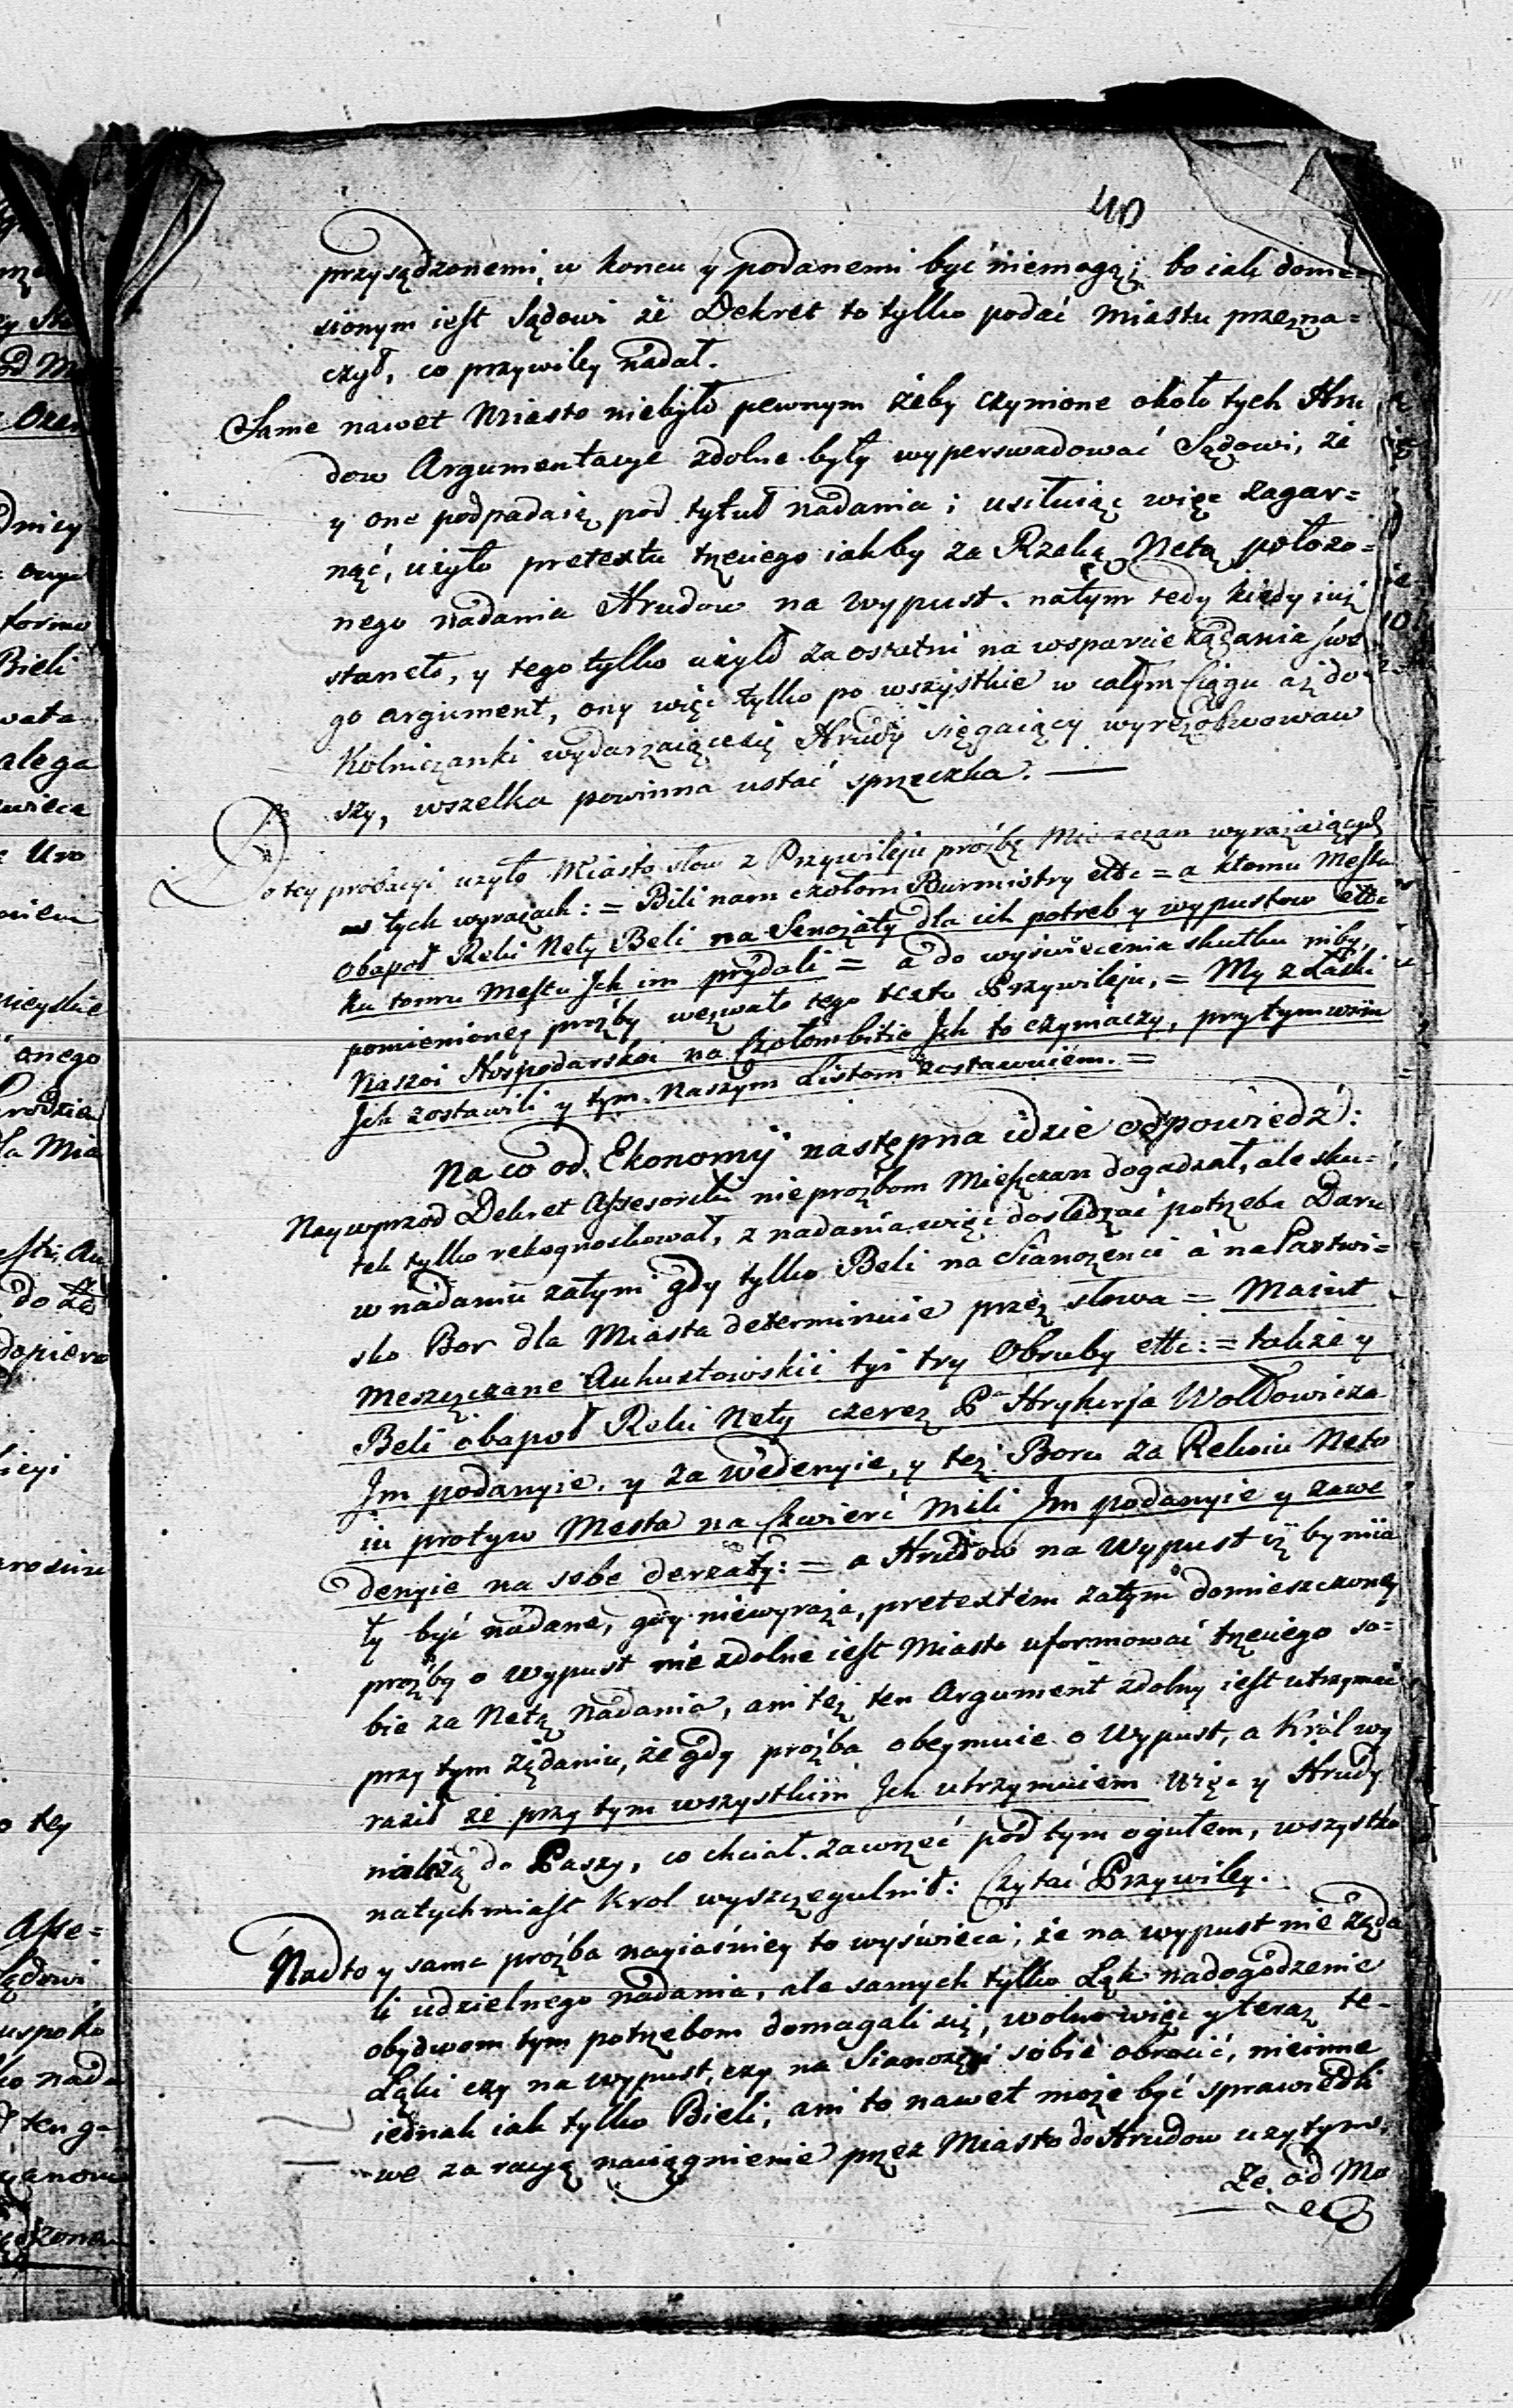 40
przysądzonemi, w koncu y podanemi być niemogą; bo iak donie=
sionym iest Sądowi że Dekret to tylko podać Miastu przezna=
czył, co przywiley nadał.
Same nawet Miasto niebyło pewnym żeby czynione około tych Hru
dow Argumentacye zdolne były wyperswadować Sądowi, że
y one podpadaią pod tytuł nadania; usiłuiąc więc zagar=
nąć, użyło pretextu trzeciego iakby za Rzeką Nettą położo=
nego nadania Hrudow na wypust. natym tedy kiedy iuż
staneło, y tego tylko użyło za ostatni na wsparcie żądania swe
go argument, ony więc tylko po wszystkie w całym Ciągu aż do
Kolniczanki wydarzaiącesię Hrudy sięgaiący wyrezolwowaw
szy, wszelka powinna ustać sprzeczka. —
Do tey probacyi użyło Miasto słow z Przywileju proźbę Mieszczan wyrażaiących
w tych wyrazach: = Bili nam czołom Burmistry ettc = a ktomu Mestu
obapoł Reki Nety Beli na Senożaty dla ich potreb y wypustow ettc
ku tomu Mestu Ich im prydali = a do wyświecenia skutku niby
pomienioney proźby wezwało tego textu Przywileju, = My z Łaski
Naszoi Hospodarskoi na Czołombitie Ich to czymaczy, prytym wsim
Ich zostawili y tym Naszym Listom zostawuiem. =
Na co od Ekonomij następna idzie odpowiedź:
Naywprzod Dekret Assesorski nie proźbom Mieszczan dogadzał, ale sku=
tek tylko rekognoskował, z nadania więc dosledzać potrzeba Daru
w nadaniu zatym gdy tylko Beli na Sianożenci a na Pastwi=
sko Bor dla Miasta determinuie przez słowa = Maiut
Meszczczane Auhustowskii tyi try Obruby ettc: = takze y
Beli obapoł Reki Nety czerez Pa Hryhorja Wołłowicza
Im podanyie. y zawedenyie, y też Boru za Rekoiu Neto
iu protyw Mesta na Czwierć Mili Im podanyie y zawe
denyie na sebe derzaty: = a Hrudow na Wypust iż by mia
ły być nadane, gdy niewyraża, pretextem zatym domieszczoney
proźby o Wypust nie zdolne iest Miasto uformować trzeciego so=
bie za Nettą Nadania, ani też ten Argument zdolny iest utrzymać
przy tym żądaniu, że gdy proźba obeymuie o Wypust, a Król wy
raził że przy tym wszystkim Ich utrzymuiem więc y Hrudy
należą do Paszy, co chciał zawrzeć pod tym ogułem, wszystko
natychmiast Krol wyszczegulnił: Czytać Przywiley.
Nadto y sama proźba nayiaśniey to wyświeca, że na wypust nie żąda
li udzielnego nadania, ale samych tylko Łąk nadogodzenie
obydwom tym potrzebom domagali się, wolno więc y teraz te=
Łąki czy na wypust, czy na Sianożęci sobie obrocić, nieinne
iednak iak tylko Bieli, ani to nawet może być sprawiedli
we za racyą naciągnienie przez Miasto do Hrudow użytym,
Ze od Ma